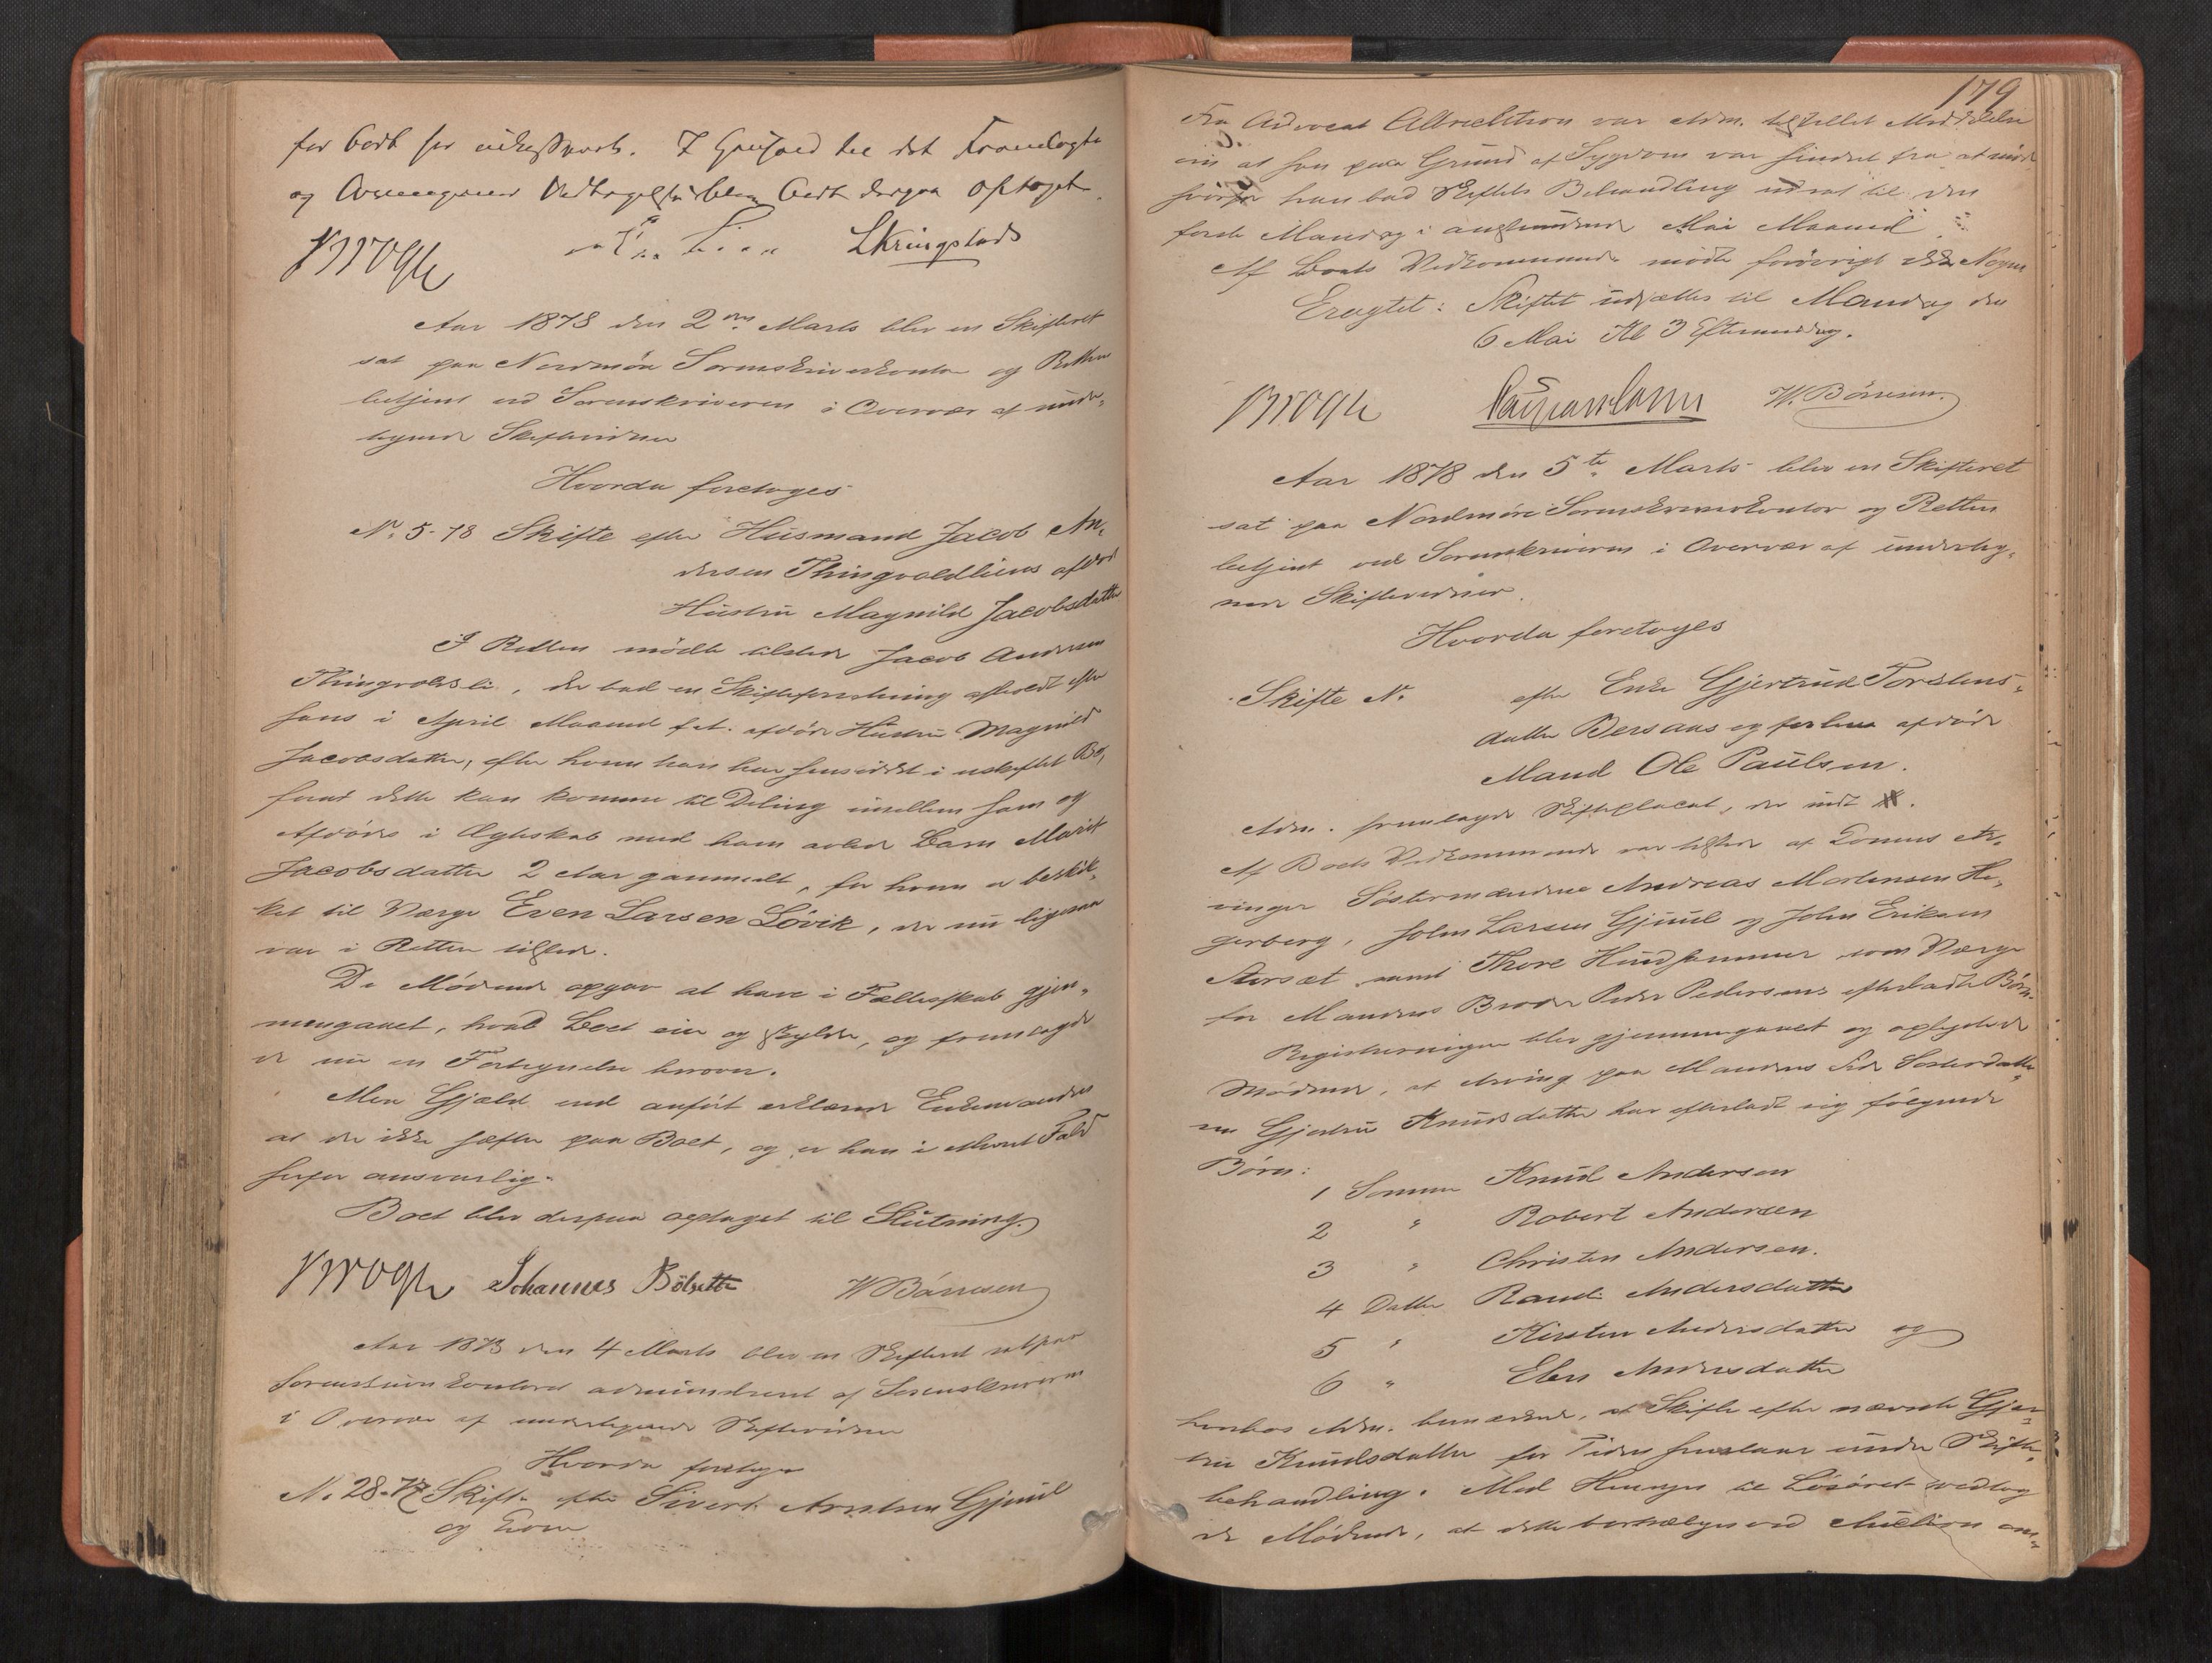 og Arvingernes Vedtagelse blev Boet derpaa optaget.
Krogh
LKringstads
Aar 1878 den 2den Marts blev en Skifteret
sat paa Nordmøre Sorenskriverkontor og Retten
betjent ved Sorenskriveren i Overvær af under-
tegnede Skiftevidner
Hvorda foretoges
No. 5-78 Skifte efter Husmand Jacob An-
dersen Thingvoldliens afdøde
Hustru Magnild Jacobsdatter
I Retten mødte tilstede Jacob Andersen
Thingvoldsli, der bad en Skifteforretning afholdt efter
hans i April Maaned f. A. afdøde Hustru Magnild
Jacobsdatter, efter hvem han har hensiddet i uskiftet Bo,
forat dette kan komme til Deling imellem ham og
Afdødes i Ægteskab med ham avlede Barn Marit
Jacobsdatter 2 Aar gammelt, for hvem er beskik-
ket til Værge Even Larsen Løvik, der nu ligesaa
var i Retten tilstede.
De Mødende opgav at have i Fællesskab gjen-
nemgaaet, hvad Boet eier og skylder, og fremlagde
de nu en Fortegnelse herover.
Mere Gjæld end anført erklærede Enkemanden
at der ikke hæfter paa Boet, og er han i Modsat Fald
herfor ansvarlig.
Boet blev derpaa optaget til Slutning.
Krogh Johannes Bölsette W Børresen
Aar 1878 den 4 Marts blev en Skifteret sat paa
Sorenskriverkontoret administreret af Sorenskriveren
i Overvær af undertegnede Skiftevidner
Hvorda foretoges
No. 28-77 Skifte efter Sivert Arntsen Gjuul
og Kone
179
Fra Advocat Albrechtson var Adm. tilstillet Meddelelse
om at han paa Grund af Sygdom var hindret fra at møde
hvorfor han bad Skiftets Behandling udsat til den
første Mandag i anstundende Mai Maaned
Af Boets Vedkommende mødte forøvrigt ikke Nogen
Eragtet: Skiftet udsættes til Mandag den
6 Mai Kl 3 Eftermiddag.
Krogh
W. Børresen.
Aar 1878 den 5te Marts blev en Skifteret
sat paa Nordmøre Sorenskriverkontor og Retten
betjent ved Sorenskriveren i Overvær af underteg-
nede Skiftevidner.
Hvorda foretoges
Skifte No. efter Enke Gjertrud Torstens-
datter Bersaas og forhen afdøde
Mand Ole Paulsen.
Adm. fremlagde Skifteplacat, der indt.
Af Boets Vedkommende var tilstede af Konens Ar-
vinger Søstermændene Andreas Mortensen He-
gerberg, John Larsen Gjuul og John Eriksen
Aarsæt samt Thore Hundhammer som Værge
for Mandens Broder Peder Pedersens efterladte Børn.
Registreringen blev gjennemgaaet og oplyste de
Mødende, at Arving paa Mandens Side Søsterdatte-
ren Gjertru Knudsdatter har efterladt sig følgende
Børn:
1 Sønnen Knud Andersen
2 " Robert Andersen
3 " Christen Andersen.
4 Datter Randi Andersdatter
5 " Kirsten Andersdatter og
6 " Elen Andersdatter
hvorhos Adm. bemærkede, at Skifte efter nævnte Gjer-
tru Knudsdatter for Tiden henstaar under Skifte-
behandling. Med Hensyn til Løsøret vedtog
de Mødende, at dette bortsælges ved Auction om-